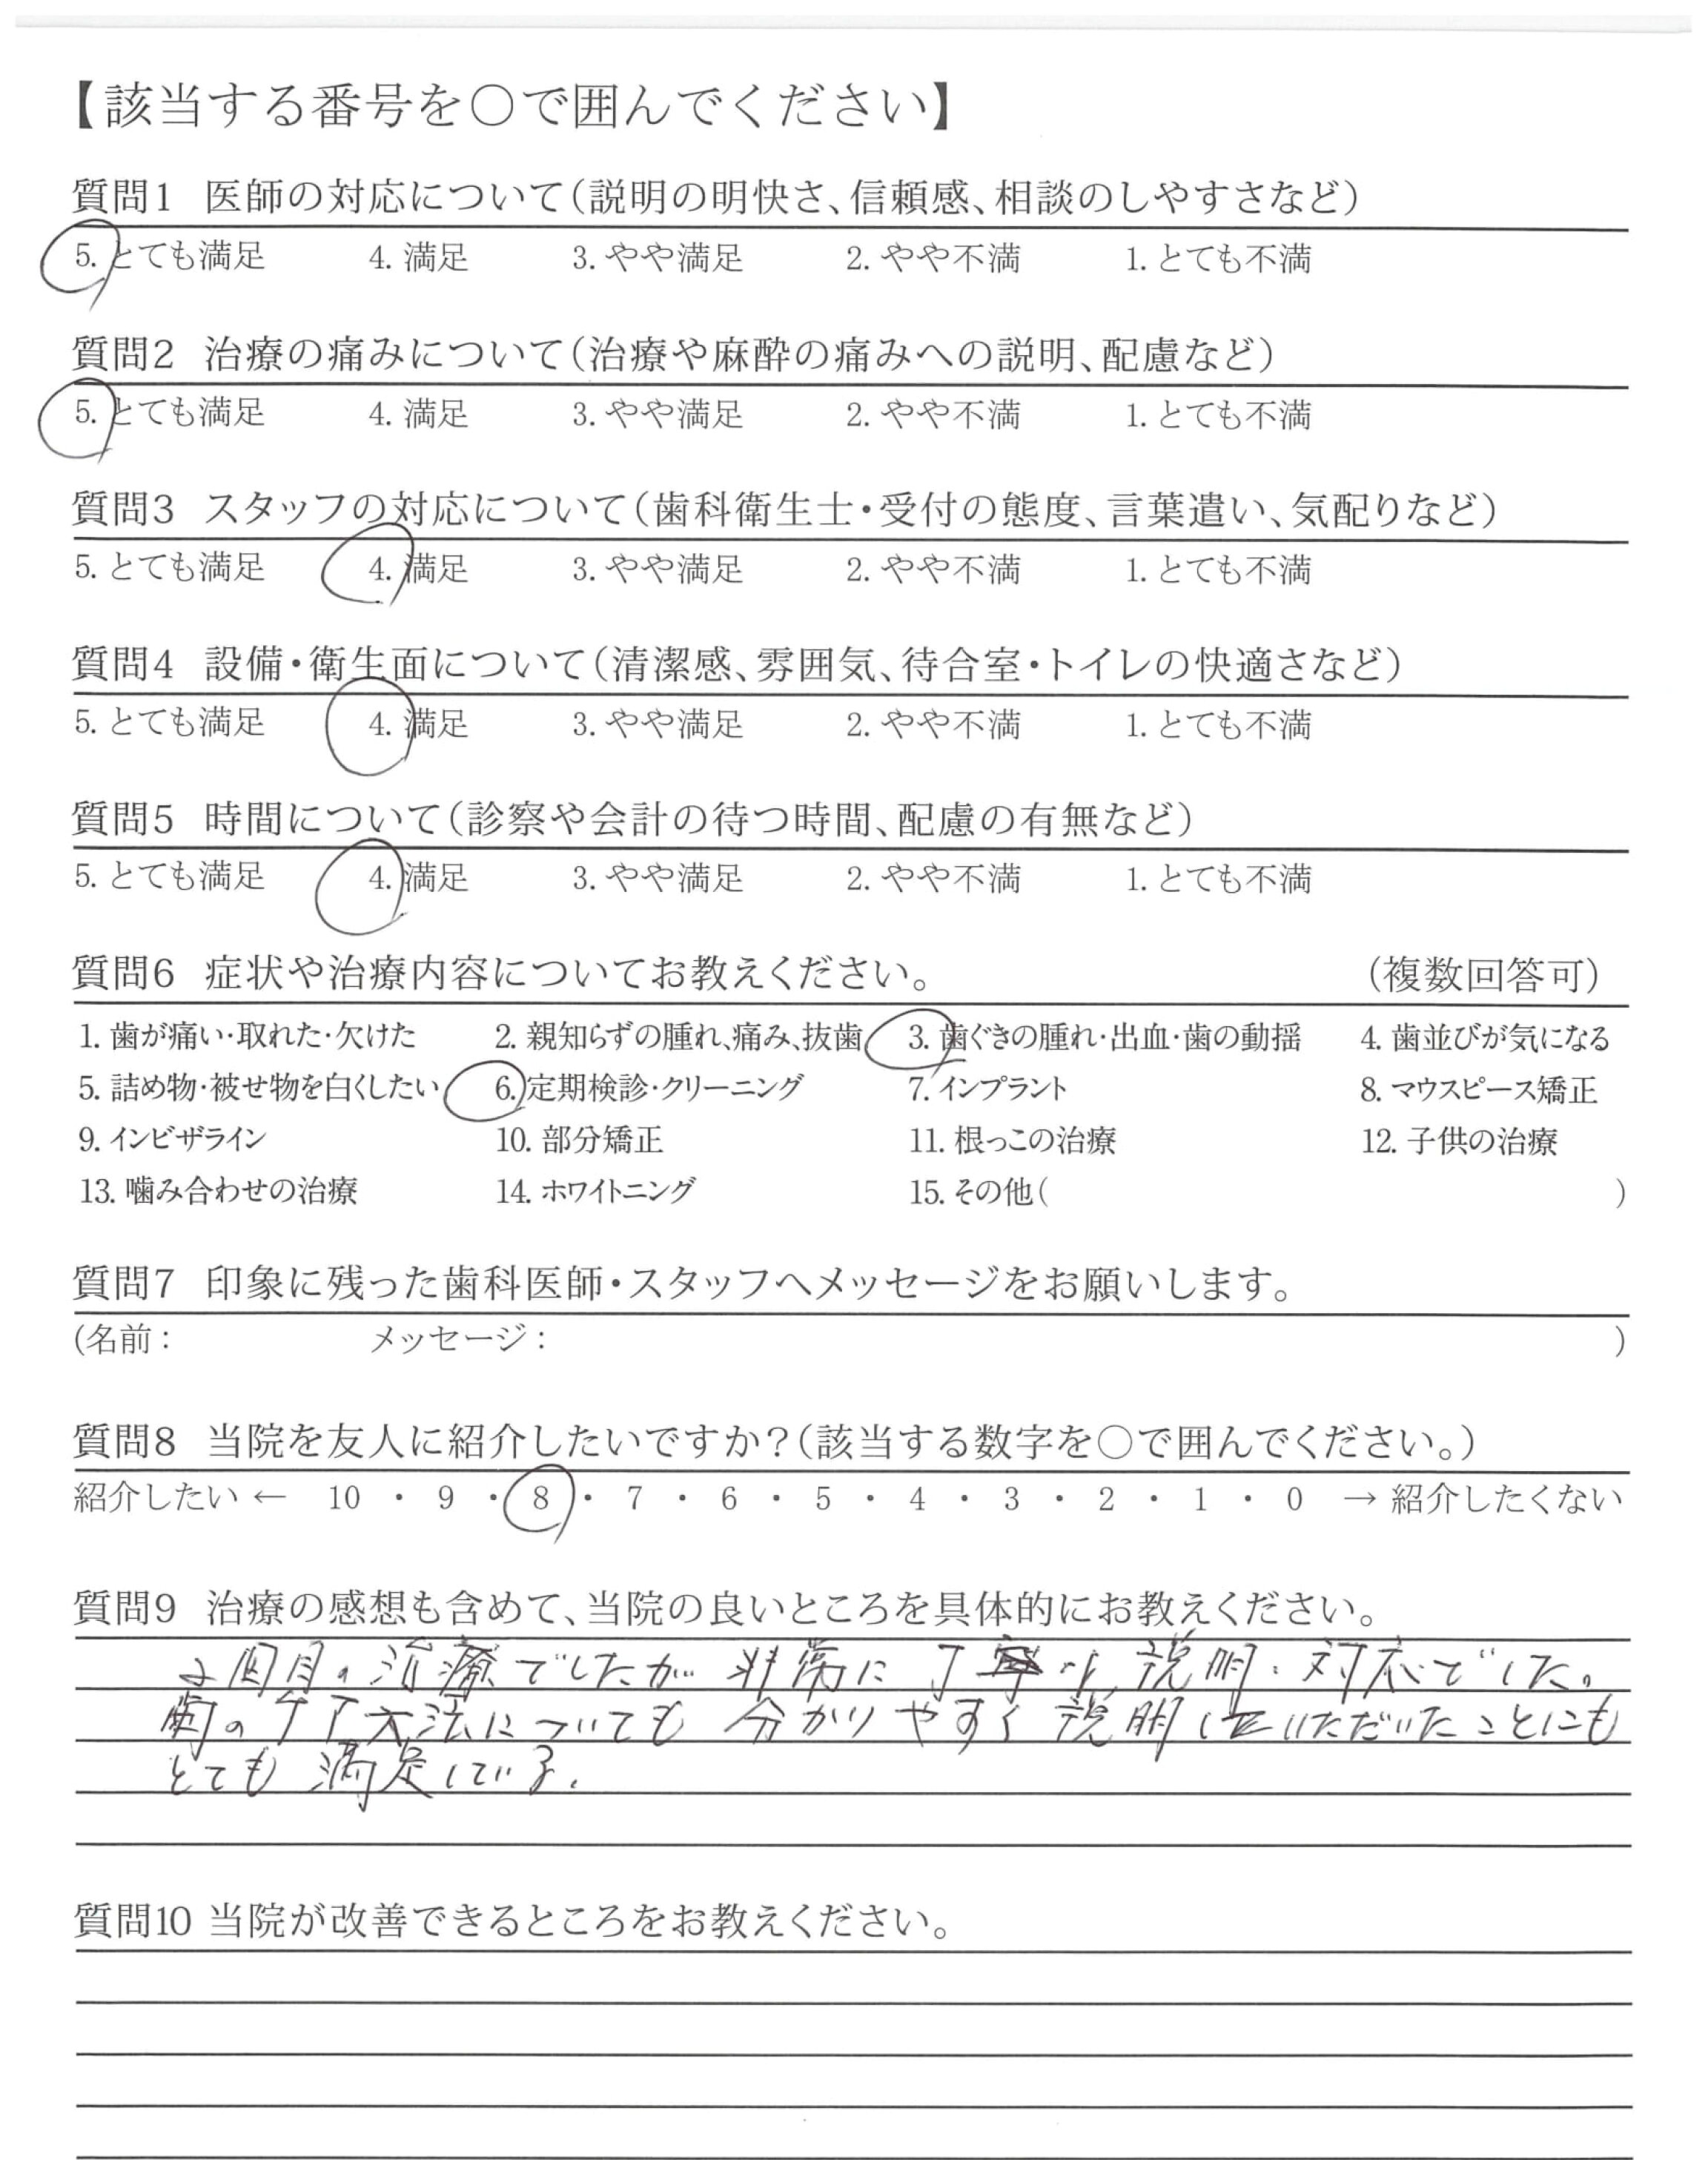 【該当する番号を○で囲んでください】
質問1 医師の対応について(説明の明快さ、信頼感、相談のしやすさなど)
5. とても満足 4. 満足 3. やや満足 2. やや不満 1. とても不満
質問2 治療の痛みについて(治療や麻酔の痛みへの説明、配慮など)
5. とても満足 4. 満足 3. やや満足 2. やや不満 1. とても不満
質問3 スタッフの対応について(歯科衛生士・受付の態度、言葉遣い、気配りなど)
5. とても満足 4. 満足 3. やや満足 2. やや不満 1. とても不満
質問4 設備・衛生面について(清潔感、雰囲気、待合室・トイレの快適さなど)
5. とても満足 4. 満足 3. やや満足 2. やや不満 1. とても不満
質問5 時間について(診察や会計の待つ時間、配慮の有無など)
5. とても満足 4. 満足 3. やや満足 2. やや不満 1. とても不満
質問6 症状や治療内容についてお教えください。 (複数回答可)
1. 歯が痛い・取れた・欠けた 2. 親知らずの腫れ、痛み、抜歯 3. 歯ぐきの腫れ・出血・歯の動揺 4. 歯並びが気になる
5. 詰め物・被せ物を白くしたい 6. 定期検診・クリーニング 7. インプラント 8. マウスピース矯正
9. インビザライン 10. 部分矯正 11. 根っこの治療 12. 子供の治療
13. 噛み合わせの治療 14. ホワイトニング 15. その他( )
質問7 印象に残った歯科医師・スタッフへメッセージをお願いします。
(名前: メッセージ: )
質問8 当院を友人に紹介したいですか?(該当する数字を○で囲んでください。)
紹介したい ← 10 ・ 9 ・ 8 ・ 7 ・ 6 ・ 5 ・ 4 ・ 3 ・ 2 ・ 1 ・ 0 → 紹介したくない
質問9 治療の感想も含めて、当院の良いところを具体的にお教えください。
2回目の治療でしたが 非常に丁寧な説明・対応でした。
歯のケア方法についても 分かりやすく 説明していただいたことにも
とても満足している。
質問10 当院が改善できるところをお教えください。